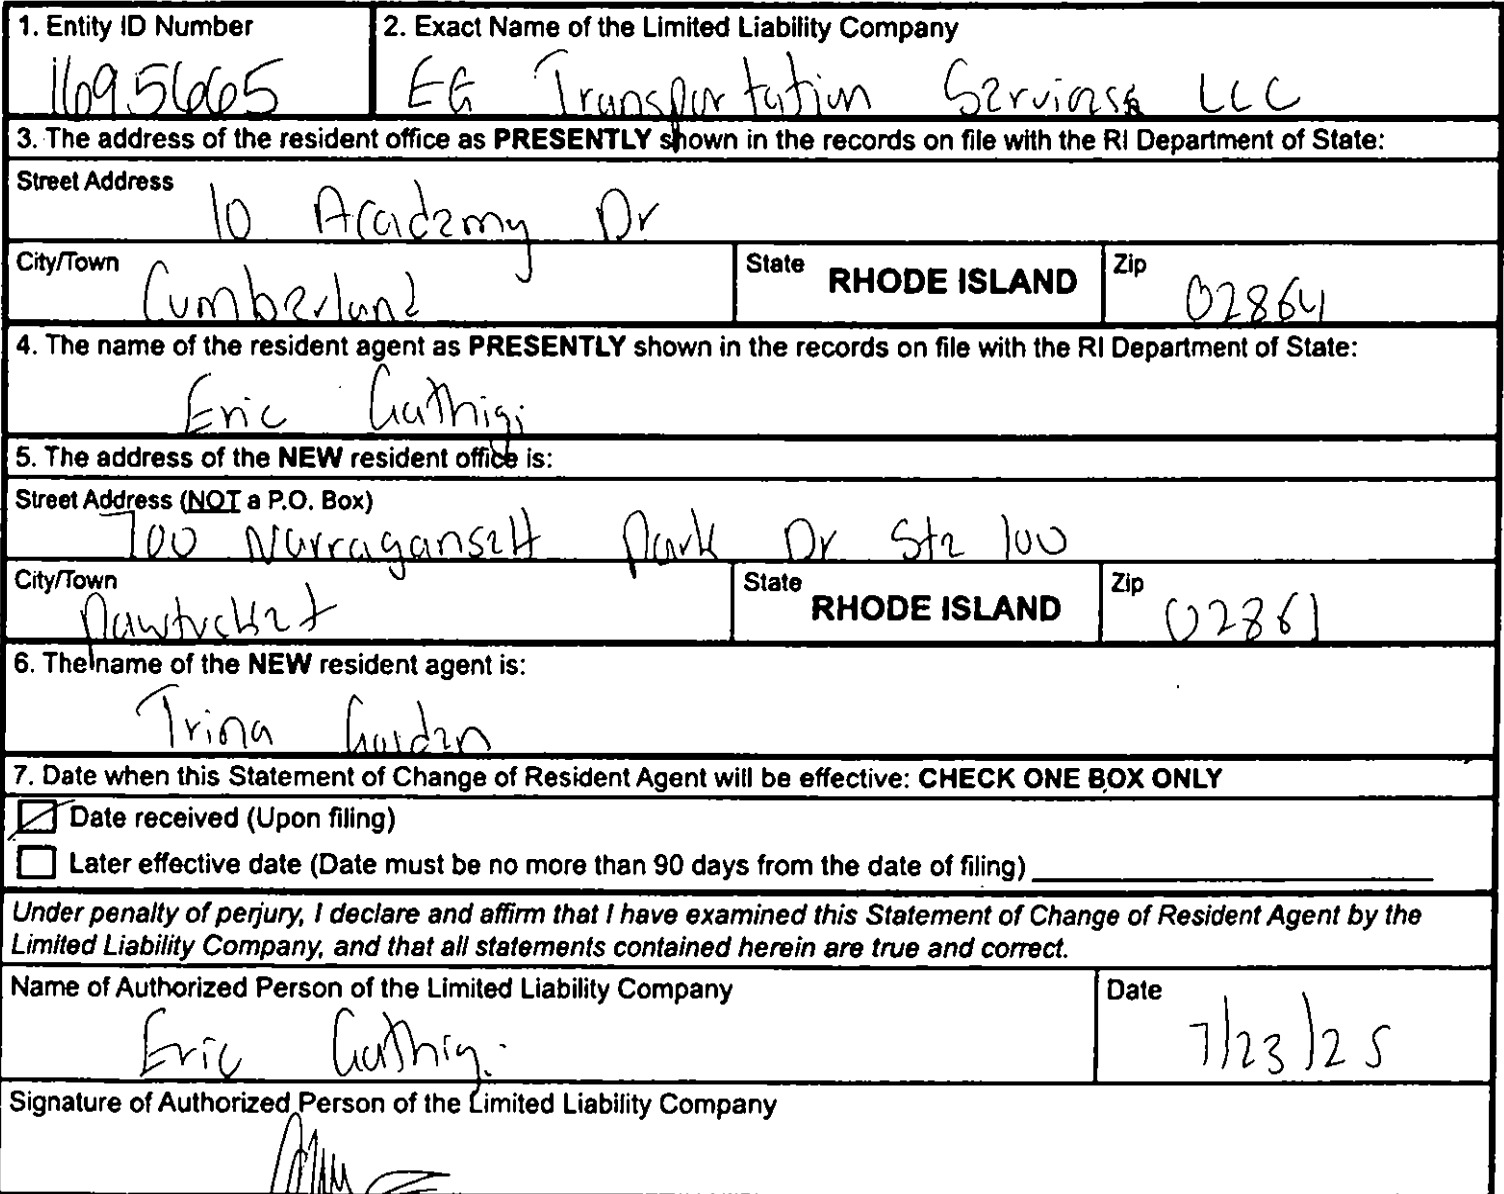 1. Entity ID Number
1695665
2. Exact Name of the Limited Liability Company
EG Transportation Services LLC
3. The address of the resident office as PRESENTLY shown in the records on file with the RI Department of State:
Street Address
10 Academy Dr
City/Town
Cumberland
State RHODE ISLAND
Zip
02864
4. The name of the resident agent as PRESENTLY shown in the records on file with the RI Department of State:
Eric Gathigi
5. The address of the NEW resident office is:
Street Address (NOT a P.O. Box)
700 Narragansett Park Dr Ste 100
City/Town
Pawtucket
State RHODE ISLAND
Zip
02861
6. The name of the NEW resident agent is:
Trina Garden
7. Date when this Statement of Change of Resident Agent will be effective: CHECK ONE BOX ONLY
Date received (Upon filing)
Later effective date (Date must be no more than 90 days from the date of filing)
Under penalty of perjury, I declare and affirm that I have examined this Statement of Change of Resident Agent by the
Limited Liability Company, and that all statements contained herein are true and correct.
Name of Authorized Person of the Limited Liability Company
Eric Gathigi
Date
7/23/25
Signature of Authorized Person of the Limited Liability Company